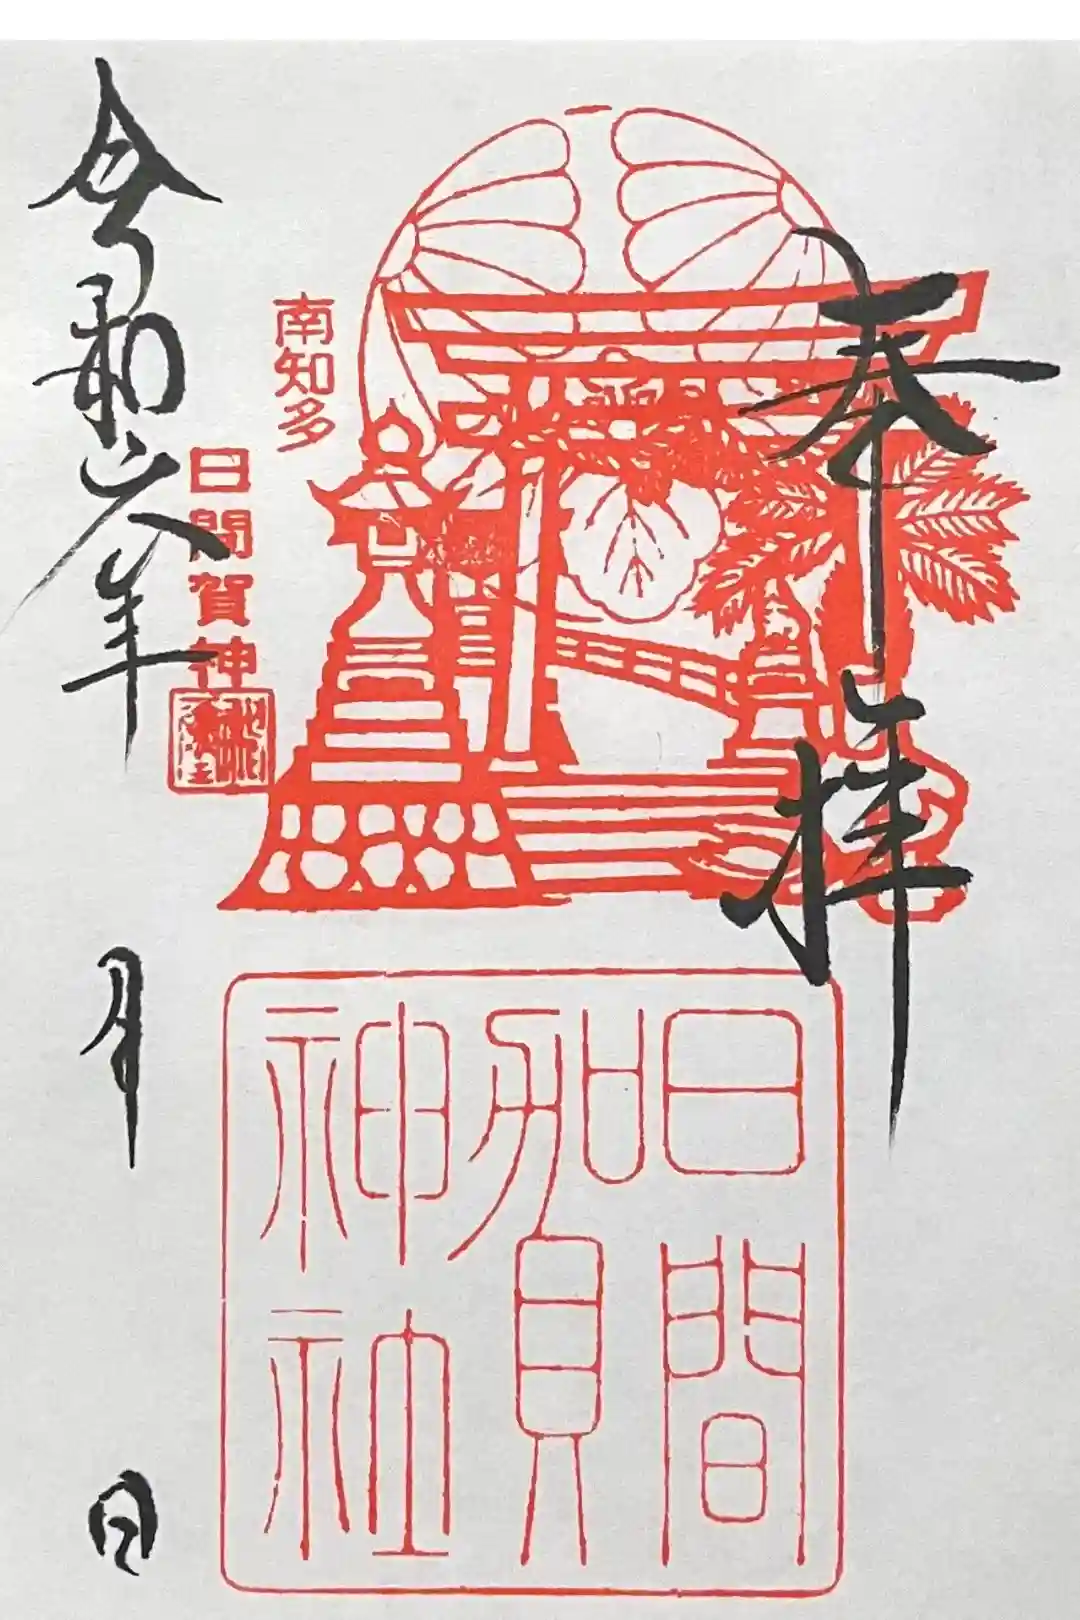 奉拝
南知多
日間賀神
日間賀神社
令和六年 月 日